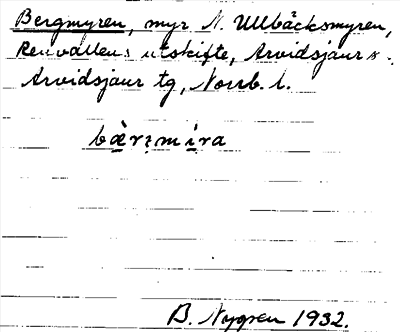 Bergmyren, myr N. Ullbäcksmyren,
Renvallens utskifte, Arvidsjaur s.
Arvidsjaur tg, Norrb. l.
bærɪmira
B. Nygren 1932.